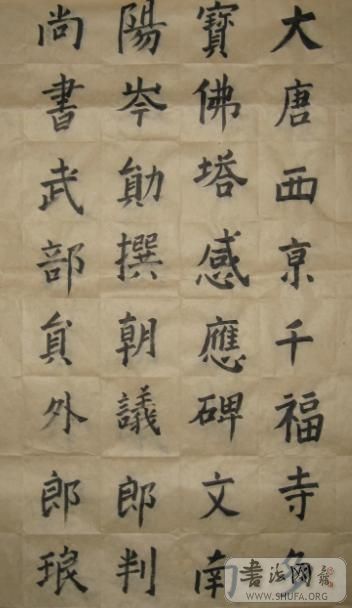 大唐西亰千福寺多
寶佛塔感應碑文南
陽岑勛撰朝議郎判
尚書武部貟外郎琅
书法网
WWW.SHUFA.ORG